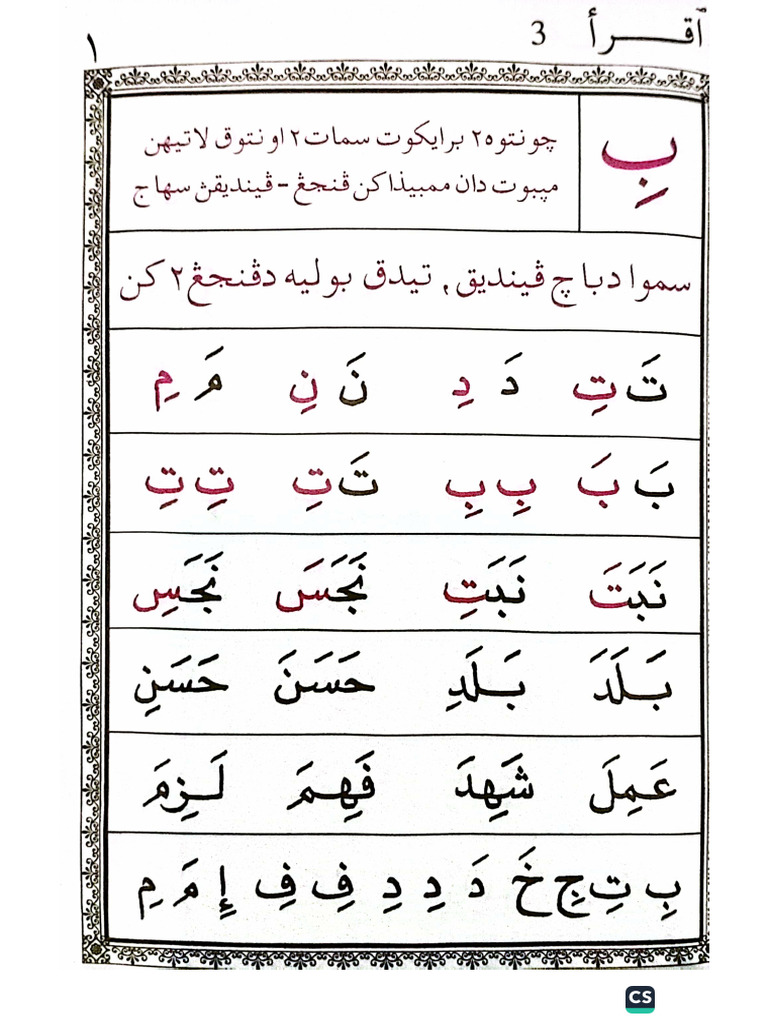 اقرأ 3 ١
بِ
چونتوه٢ برايكوت سمات٢ اونتوق لاتيهن
مپبوت دان ممبيذاكن ڤنجڠ - ڤينديقڽ سهاج
سموا دباچ ڤينديق , تيدق بوليه دڤنجڠ٢ كن
تَ تِ دَ دِ نَ نِ مَ مِ
بَ بَ بِ بِ تَ تِ تِ تِ
نَبَتَ نَبَتِ نَجَسَ نَجَسِ
بَلَدَ بَلَدِ حَسَنَ حَسَنِ
عَمِلَ شَهِدَ فَهِمَ لَزِمَ
بِ تِ جِ خَ دَ دِ دِ فِ فِ إِ مَ مِ
CS